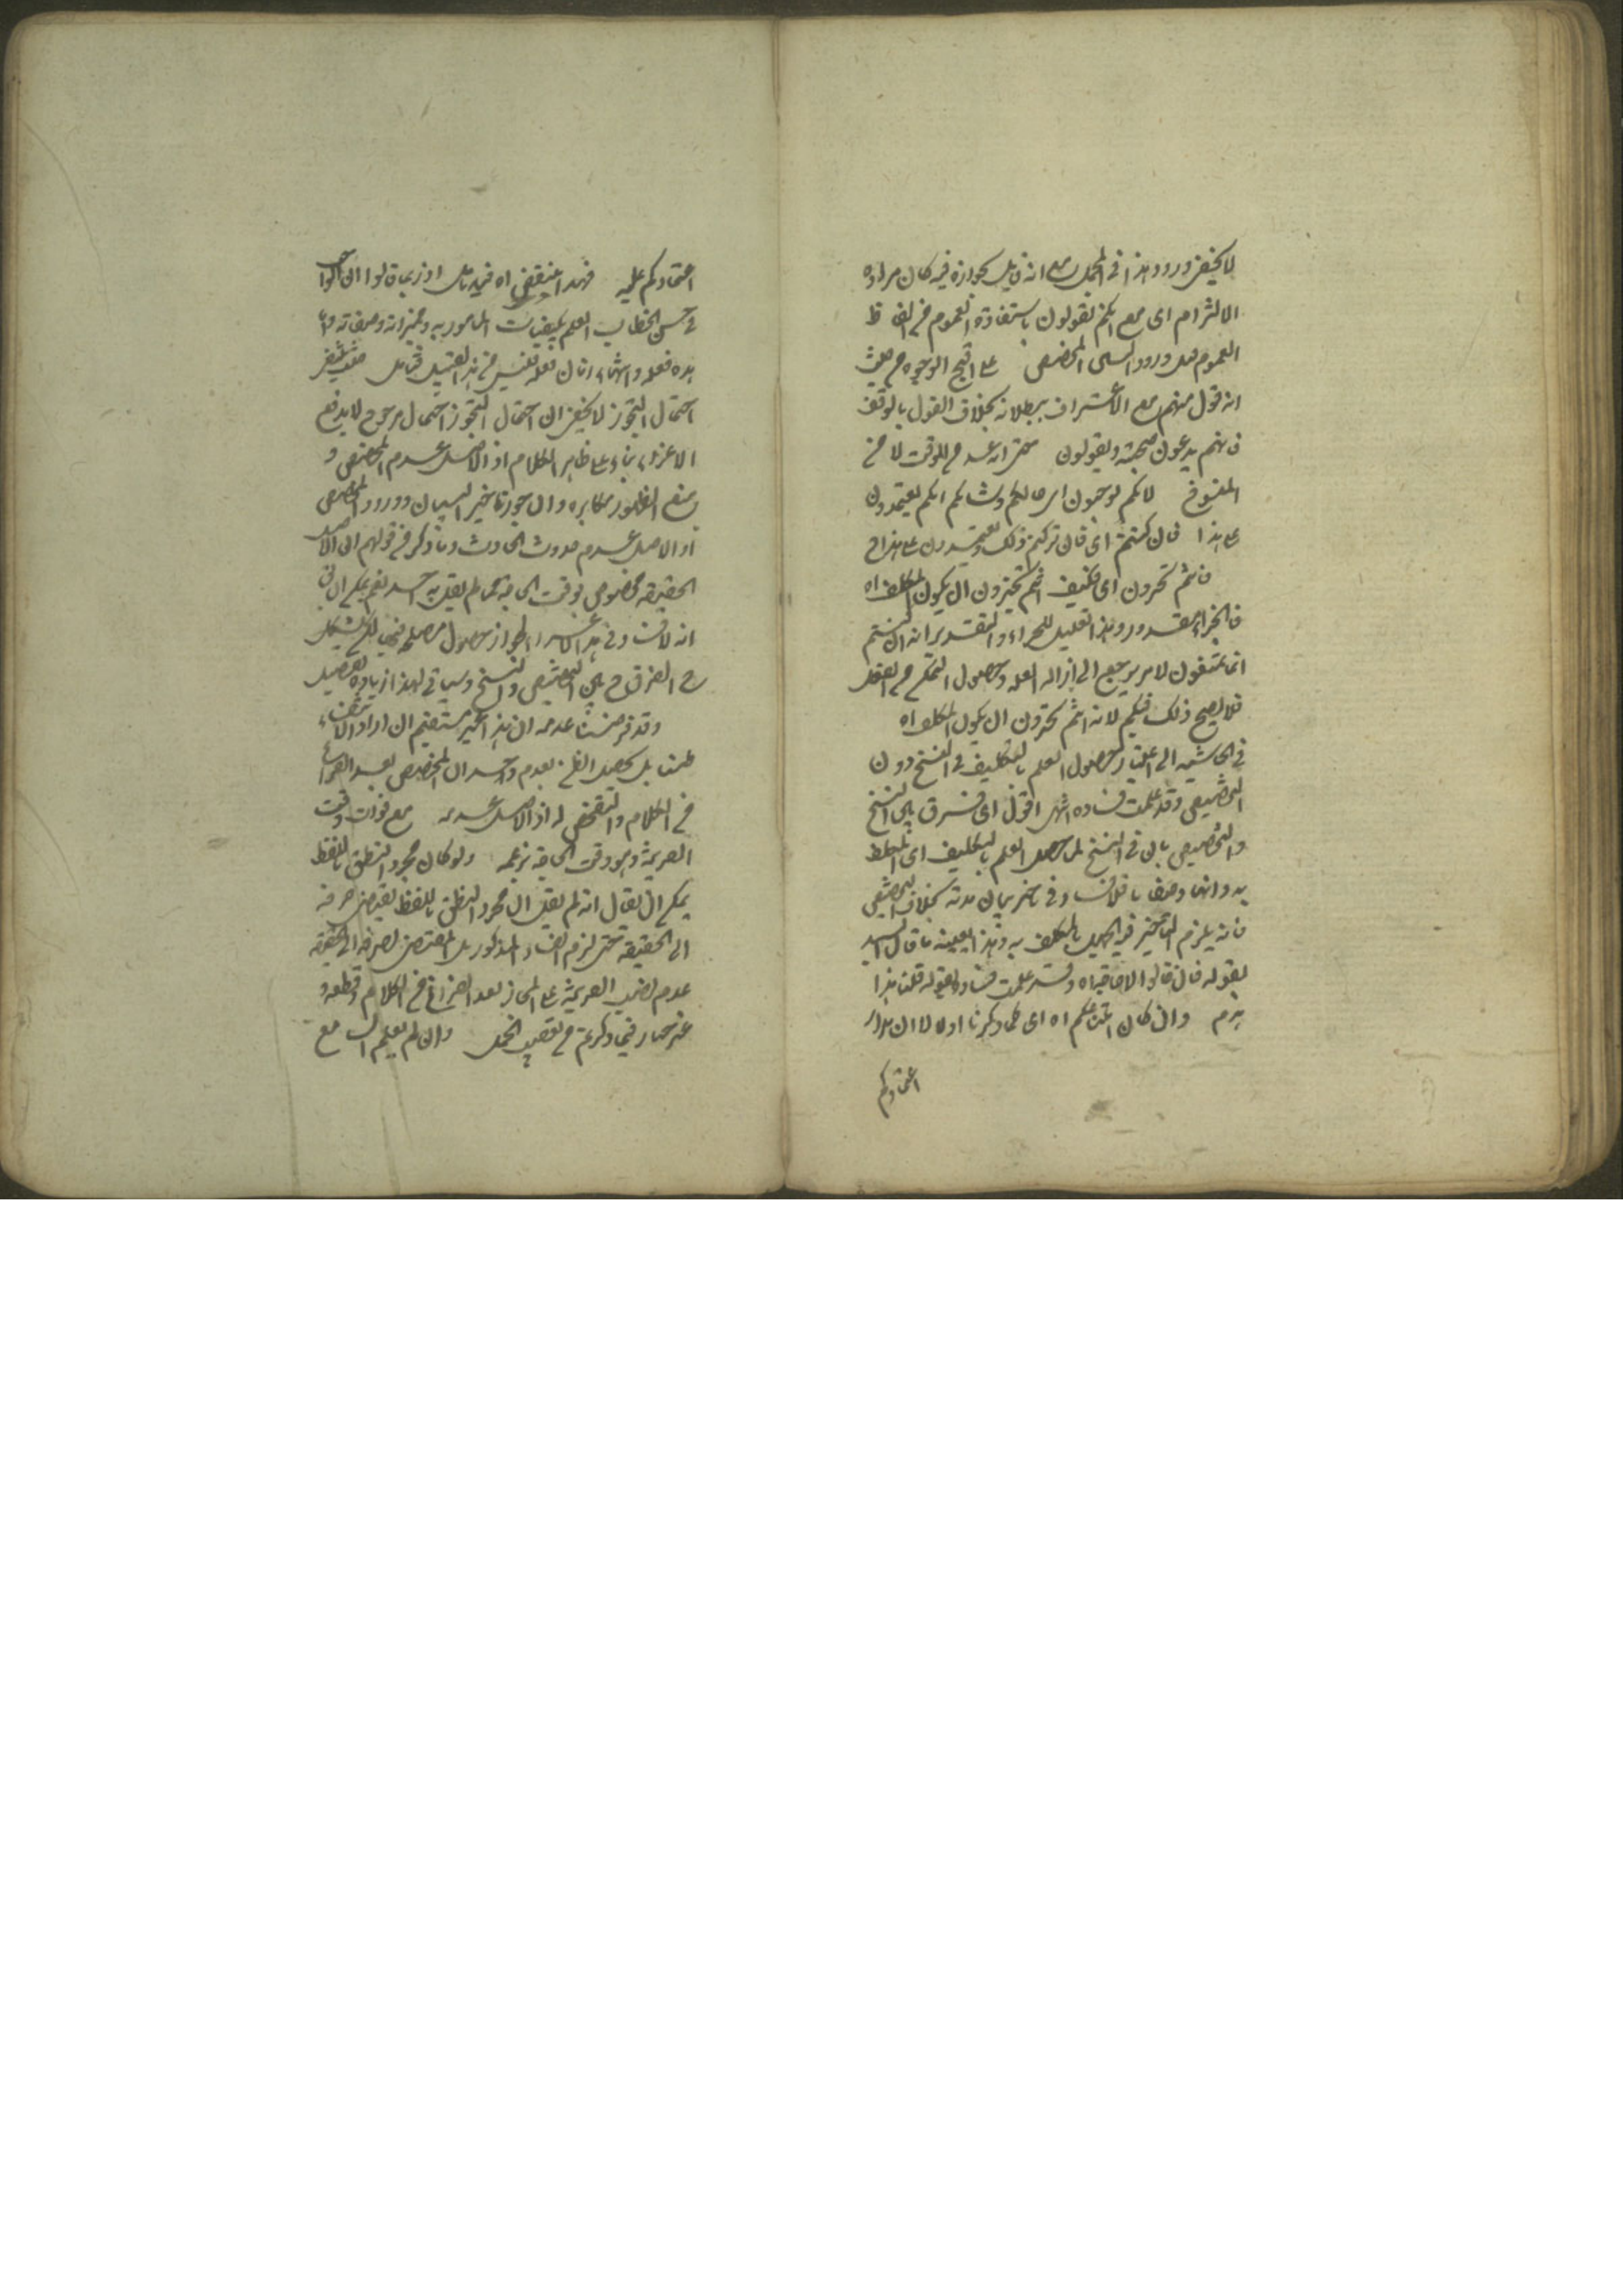 لا يخفى ورود هذا في المجمل مع انه قايل بجوازه فيه كان مراده
الالتزام اى مع انكم تقولون باستفادة العموم من الفاظ
العموم قبل ورود المخصص على اقبح الوجوه من حيث
انه قول منهم مع الاعتراف ببطلانه بخلاف القول بالوقف
فانهم يدعون صحته ويقولون متى انه عدم الوقت لا من
المنسوخ لانكم توجبون اى حالكم وشانكم انكم تعتمدون
على هذا فان كنتم اى فان تركتم ذلك وتعتمدون على هذا
فانتم تجوزون اى فكيف انتم تجوزون ان يكون المكلف اه
فالجزاء مقدر وهذا تعليل للجزاء والتقدير انه ان كنتم
انما تمنعون لامر يرجع الى ازالة العلة وحصول التمكن من الفعل
فلا يصح ذلك فيكم لانه انتم تجوزون ان يكون المكلف اه
في الحاشية الى اعتبار حصول العلم بالتكليف في النسخ دون
التخصيص وقد علمت فساده انتهى اقول اى فرق بين النسخ
والتخصيص بان في النسخ لما حصل العلم بالتكليف اى
به وانما وصفا فلا فساد في تاخير بيان مدته بخلاف التخصيص
فانه يلزم التاخير فيه الجهل بالمكلف به وهذا بعينه ما قال السيد
بقوله فان قالوا لا حاجة اه وقد علمت فساده بقوله قلنا هذا
هدم وان كان امتناعكم اه اى كما ذكرنا اولا لا ان مدار
اعتمادكم
اعتمادكم عليه فهذا ينتقض اه فيه تامل اذ ربما قالوا ان
في حسن الخطاب العلم بكيفيات المامور به ومميزاته وصفاته
مدة فعله وانتهاء زمان فعله فليس من هذا القبيل فتامل
احتمال التجوز لا يخفى ان احتمال التجوز احتمال مرجوح لا يدفع
الاغراء بناء على ظاهر الكلام اذ الاصل عدم المخصص و
منع الظهور مكابرة وان جوز تاخير البيان وورود المخصص
اذ الاصل عدم حدوث الحادث وما ذكر في قولهم ان الاصل
الحقيقة مخصوص بوقت الحاجة مما لم يقل به احد نعم يمكن ان يق
انه لا فساد في هذا الاغراء لجواز حصول مصلحة فيها لكن يشكل
ح الفرق بين التخصيص والنسخ وسياتي لهذا زيادة تفصيل
وقد فرضنا عدمه ان هذا غير مستقيم ان اراد الانتفاء
علما بل يحصل الظن بعدم وجدان المخصص بعد الفراغ
من الكلام والتفحص له اذ الاصل عدمه مع فوات وقت
القرينة وهو وقت الحاجة بزعمه ولو كان مجرد النطق باللفظ
يمكن ان يقال انه لم يقل ان مجرد النطق باللفظ يقتضى صرفه
الى الحقيقة حتى لزم الفساد المذكور بل المقتضى لصرفه الى الحقيقة
عدم نصب القرينة على المجاز بعد الفراغ من الكلام وقطعه و
غير ضار فيما ذكرتم من تفصيل المجمل وان لم يعلم السامع